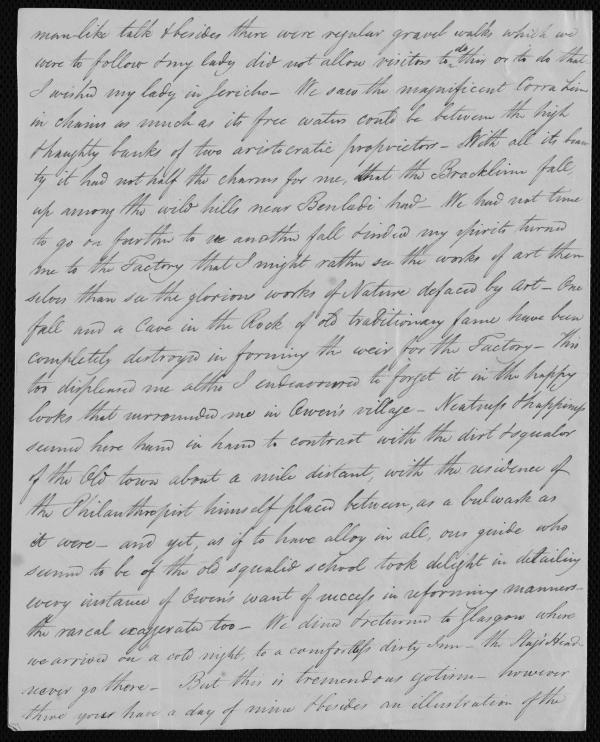 man-like talk & besides there were regular gravel walks which we
were to follow & my lady did not allow visitors to do this or to do that
I wished my lady in Jericho - We saw the magnificent Corra Linn
in chains as much as its free waters could be between the high
& haughty banks of two aristocratic proprietors - With all its beau
ty it had not half the charms for me, that the Bracklinn fall,
up among the wild hills near Benledi had - We had not time
to go on further to see another fall & indeed my spirits turned
me to the Factory that I might rather see the works of art them
selves than see the glorious works of Nature defaced by art - One
fall and a Cave in the Rock of old traditionary fame have been
completely destroyed in forming the weir for the Factory - This
too displeased me altho I endeavoured to forget it in the happy
looks that surrounded me in Owen's village - Neatness & happiness
seemed here hand in hand to contrast with the dirt & squalor
of the Old town about a mile distant, with the residence of
the Philanthropist himself placed between, as a bulwark as
it were - and yet, as if to have alloy in all, our guide who
seemed to be of the old squalid school took delight in detailing
every instance of Owen's want of success in reforming manners -
the rascal exaggerated too - We dined & returned to Glasgow where
we arrived on a cold night, to a comfortless dirty Inn - the Stag's Head
never go there - But this is tremendous egotism - however
there you have a day of mine & besides an illustration of the